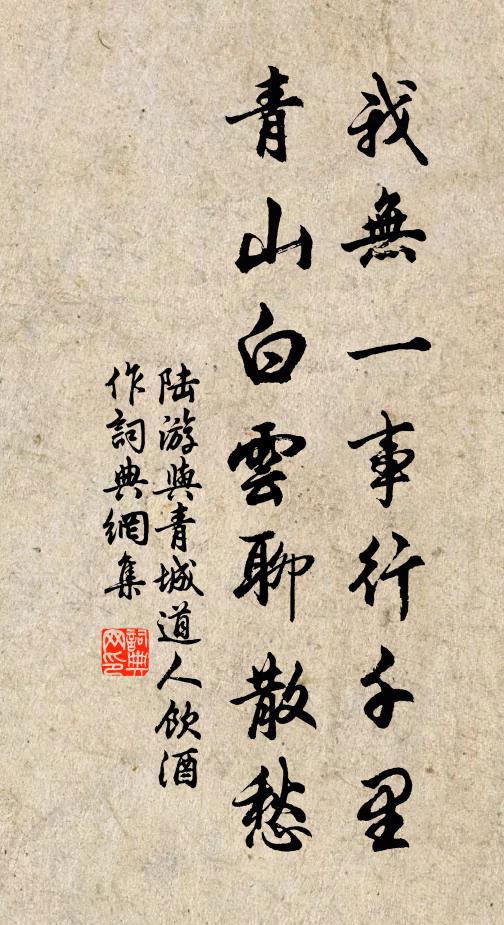 我無一事行千里
青山白雲聊散愁
陆游與青城道人飲酒
作詞典網集
詞典
网印